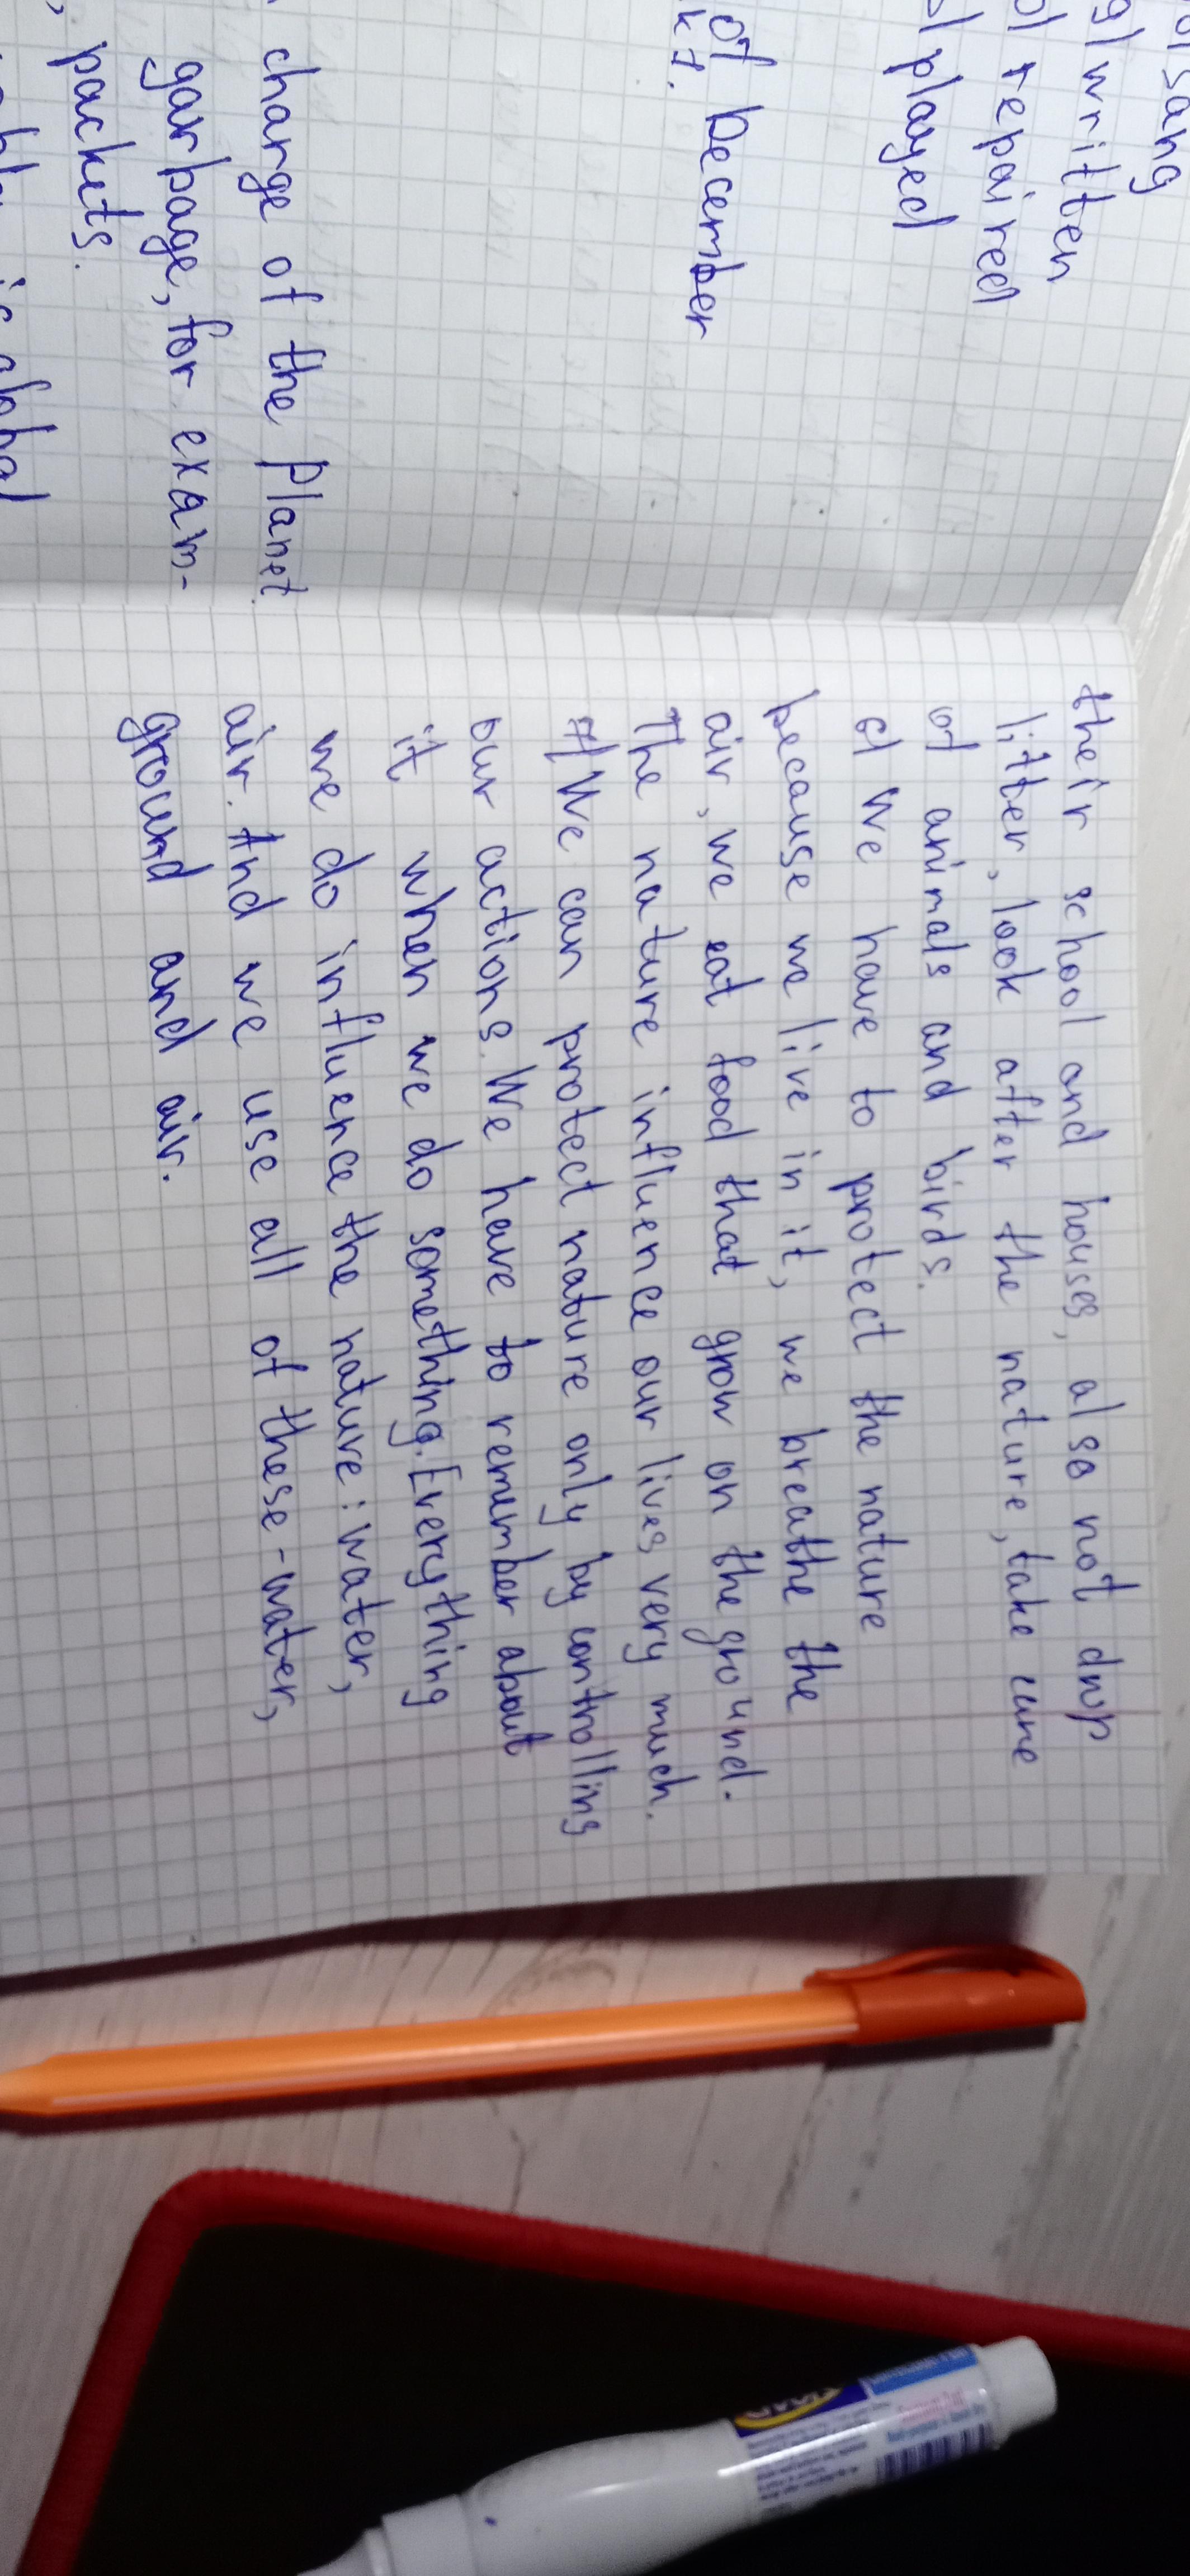 g) sang
g) written
b) repaired
b) played
of December
change of the Planet.
garpage, for exam-
packets.
is global
their school and houses, also not drop
litter, look after the nature, take care
of animals and birds.
6) We have to protect the nature
because we live in it, we breathe the
air, we eat food that grow on the ground.
The nature influence our lives very much.
7) We can protect nature only by controlling
our actions. We have to remember about
it when we do something. Everything
we do influence the nature: water,
air. And we use all of these - water,
ground and air.